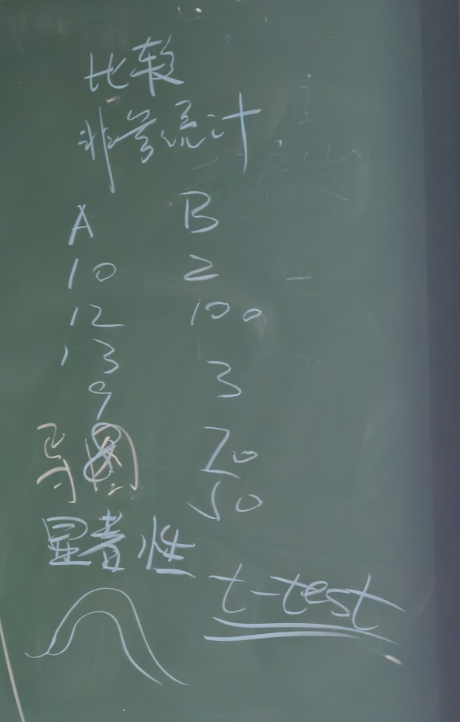 比较
非参统计
A B
10 2
12 100
13 3
9
8 20
导图 50
显著性
t-test